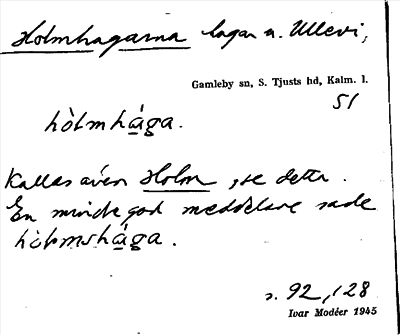 Holmhagarna hagar n. Ullevi,
Gamleby sn, S. Tjusts hd, Kalm. l.
51
hòlmhága.
Kallas även Holm, se detta.
En mindre god meddelare sade
hòlmshága.
s. 92, 128
Ivar Modéer 1945